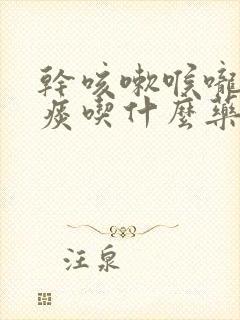 幹咳嗽喉嚨
痰喫什麼藥
汪泉